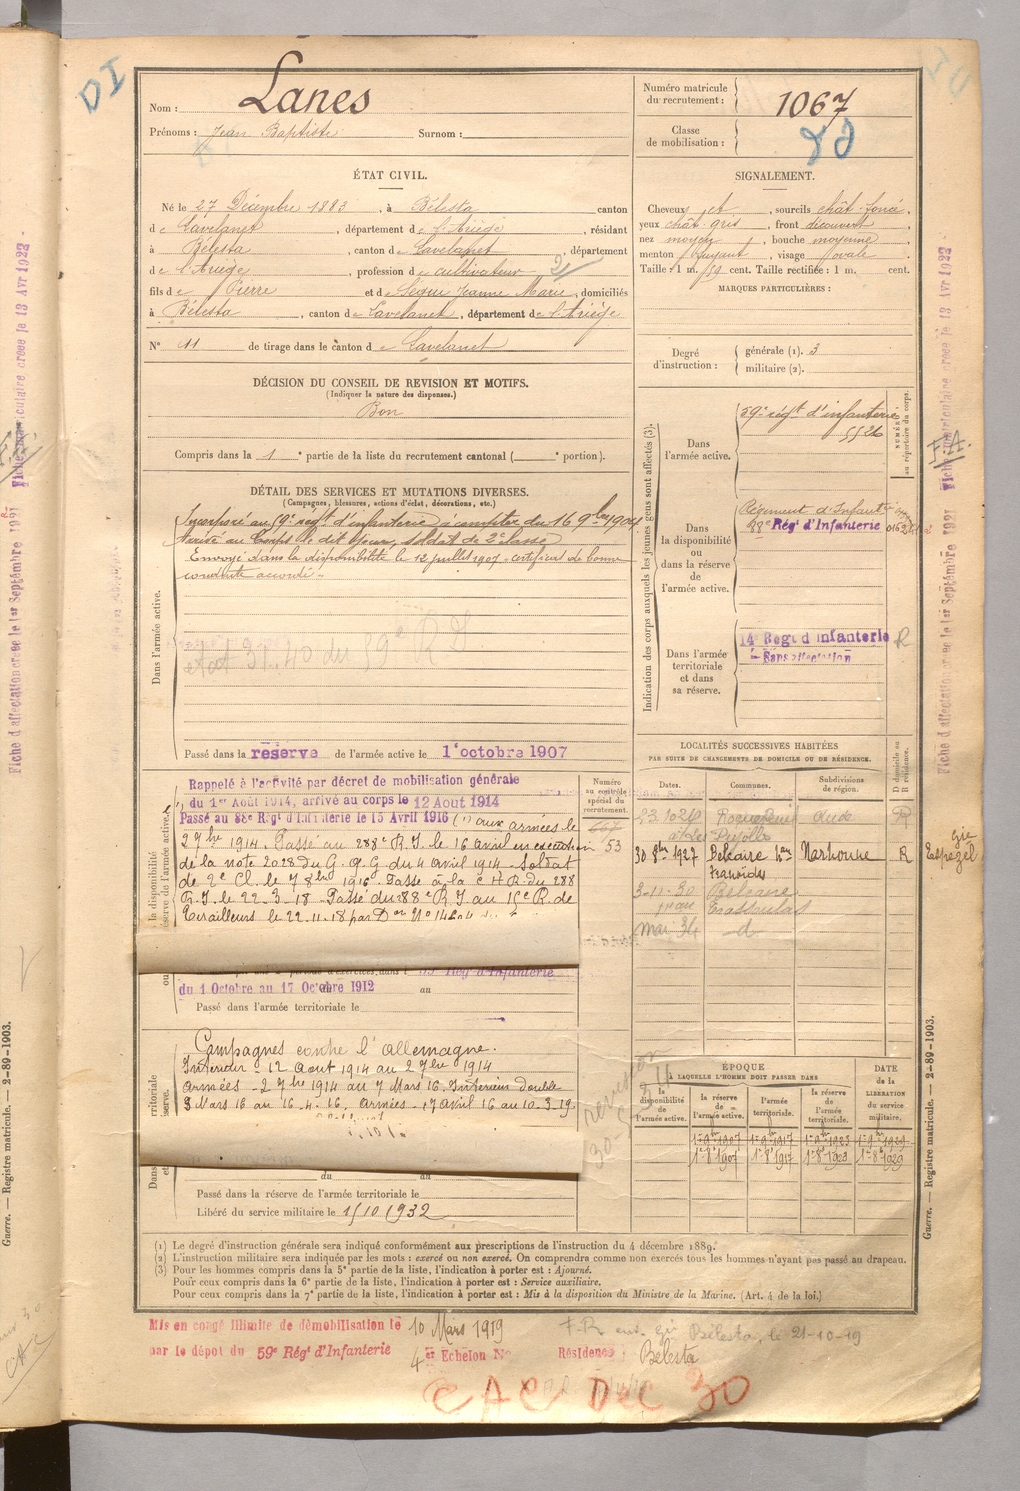 DI
Nom : Lanes
Prénoms : Jean Baptiste Surnom :
Numéro matricule du recrutement : 1067
Classe de mobilisation :
ÉTAT CIVIL.
Né le 27 Décembre 1883, à Bélesta canton
de Lavelanet, département de l'Ariège, résidant
à Bélesta, canton de Lavelanet, département
de l'Ariège, profession de cultivateur
fils de Pierre et de Jeanne Marie, domiciliés
à Bélesta, canton de Lavelanet, département de l'Ariège
N° 11 de tirage dans le canton de Lavelanet
SIGNALEMENT.
Cheveux et, sourcils chât. foncé,
yeux chât gris, front découvert,
nez moyen, bouche moyenne,
menton fuyant, visage ovale
Taille : 1 m. 59 cent. Taille rectifiée : 1 m. cent.
MARQUES PARTICULIÈRES :
Degré d'instruction :
générale (1). 3
militaire (2).
DÉCISION DU CONSEIL DE REVISION ET MOTIFS.
(Indiquer la nature des dispenses.)
Bon
Compris dans la 1e partie de la liste du recrutement cantonal ( e portion).
DÉTAIL DES SERVICES ET MUTATIONS DIVERSES.
(Campagnes, blessures, actions d'éclat, décorations, etc.)
Incorporé au 59e régt d'infanterie à compter du 16 9bre 1904.
Arrivé au Corps le dit jour, soldat de 2e classe
Envoyé dans la disponibilité le 12 juillet 1907. certificat de bonne
conduite accordé.
Dans l'armée active.
Passé dans la réserve de l'armée active le 1er octobre 1907
Indication des corps auxquels les jeunes gens sont affectés (3).
Dans l'armée active.
59e régt d'infanterie
5526
NUMÉROS au répertoire du corps.
Dans la disponibilité ou dans la réserve de l'armée active.
Régiment d'Infanterie
88e Régt d'Infanterie
Dans l'armée territoriale et dans sa réserve.
14e Régt d'Infanterie R
Sans affectation
Rappelé à l'activité par décret de mobilisation générale
du 1er Août 1914, arrivé au corps le 12 Aout 1914
Passé au 88e Régt d'Infanterie le 15 Avril 1916 (1) aux armées le
2 7bre 1914. Passé au 288e R.I. le 16 avril en exécution
de la note 2028 du G.Q.G du 4 avril 1914 - Soldat
de 2e Cl. le 7 8bre 1916. Passé à la C H R du 288
R.I. le 22-3-18 - Passé du 288e R I au 15e R. de
Tirailleurs le 22.11.18 par Don No 14204
Numéro au contrôle spécial du recrutement.
53
LOCALITÉS SUCCESSIVES HABITÉES
PAR SUITE DE CHANGEMENTS DE DOMICILE OU DE RÉSIDENCE.
Dates. Communes. Subdivisions de région. D domicile ou R résidence.
23.10.24 Aude R
30 8bre 1927 Belcaire Narbonne R
3-11-30 Belcaire
Mai 34 -d-
89e Régt d'Infanterie
du 1 Octobre au 17 Octobre 1912 au
Passé dans l'armée territoriale le
Campagnes contre l'allemagne.
Intérieur - 12 Aout 1914 au 2 7bre 1914
Armées - 2 7bre 1914 au 7 Mars 16. Intérieur double
8 Mars 16 au 16-4-16. Armées - 17 Avril 16 au 10-3-19.
du au
Passé dans la réserve de l'armée territoriale le
Libéré du service militaire le 15/10/1932
ÉPOQUE
À LAQUELLE L'HOMME DOIT PASSER DANS
la disponibilité de l'armée active. la réserve de l'armée active. l'armée territoriale. la réserve de l'armée territoriale.
DATE de la LIBÉRATION du service militaire.
1er 9bre 1907 1er 9bre 1917 1er 9bre 1923 1er 9bre 1929
1er 8bre 1907 1er 8bre 1917 1er 8bre 1923 1er 8bre 1929
(1) Le degré d'instruction générale sera indiqué conformément aux prescriptions de l'instruction du 4 décembre 1889.
(2) L'instruction militaire sera indiquée par les mots : exercé ou non exercé. On comprendra comme non exercés tous les hommes n'ayant pas passé au drapeau.
(3) Pour les hommes compris dans la 5e partie de la liste, l'indication à porter est : Ajourné.
Pour ceux compris dans la 6e partie de la liste, l'indication à porter est : Service auxiliaire.
Pour ceux compris dans la 7e partie de la liste, l'indication à porter est : Mis à la disposition du Ministre de la Marine. (Art. 4 de la loi.)
Mis en congé illimité de démobilisation le 10 Mars 1919
par le dépot du 59e Régt d'Infanterie 4e Echelon N° Résidence : Bélesta
Bélesta, le 21-10-19
CAC DEC 30
Fiche d'affectation créée le 1er Septembre 1921
Fiche matriculaire créée le 13 Avr 1922
F.A.
Guerre. — Registre matricule. — 2-89-1903.